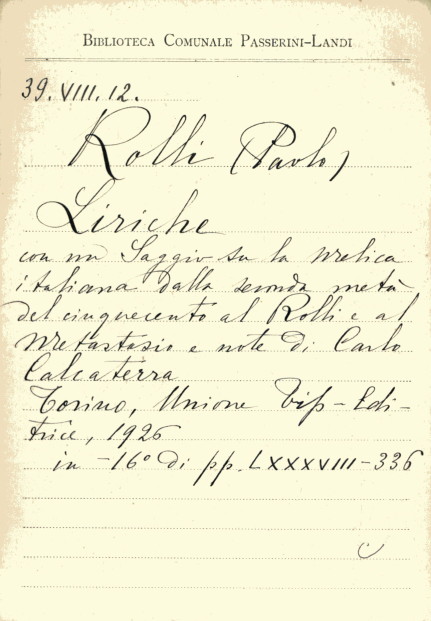 BIBLIOTECA COMUNALE PASSERINI-LANDI
39. VIII. 12.
Rolli (Paolo)
Liriche
con un Saggio su la melica
italiana dalla seconda metà
del cinquecento al Rolli e al
Metastasio e note di Carlo
Calcaterra
Torino, Unione Tip-Edi-
trice, 1926
in -16° di pp. LXXXVIII-336